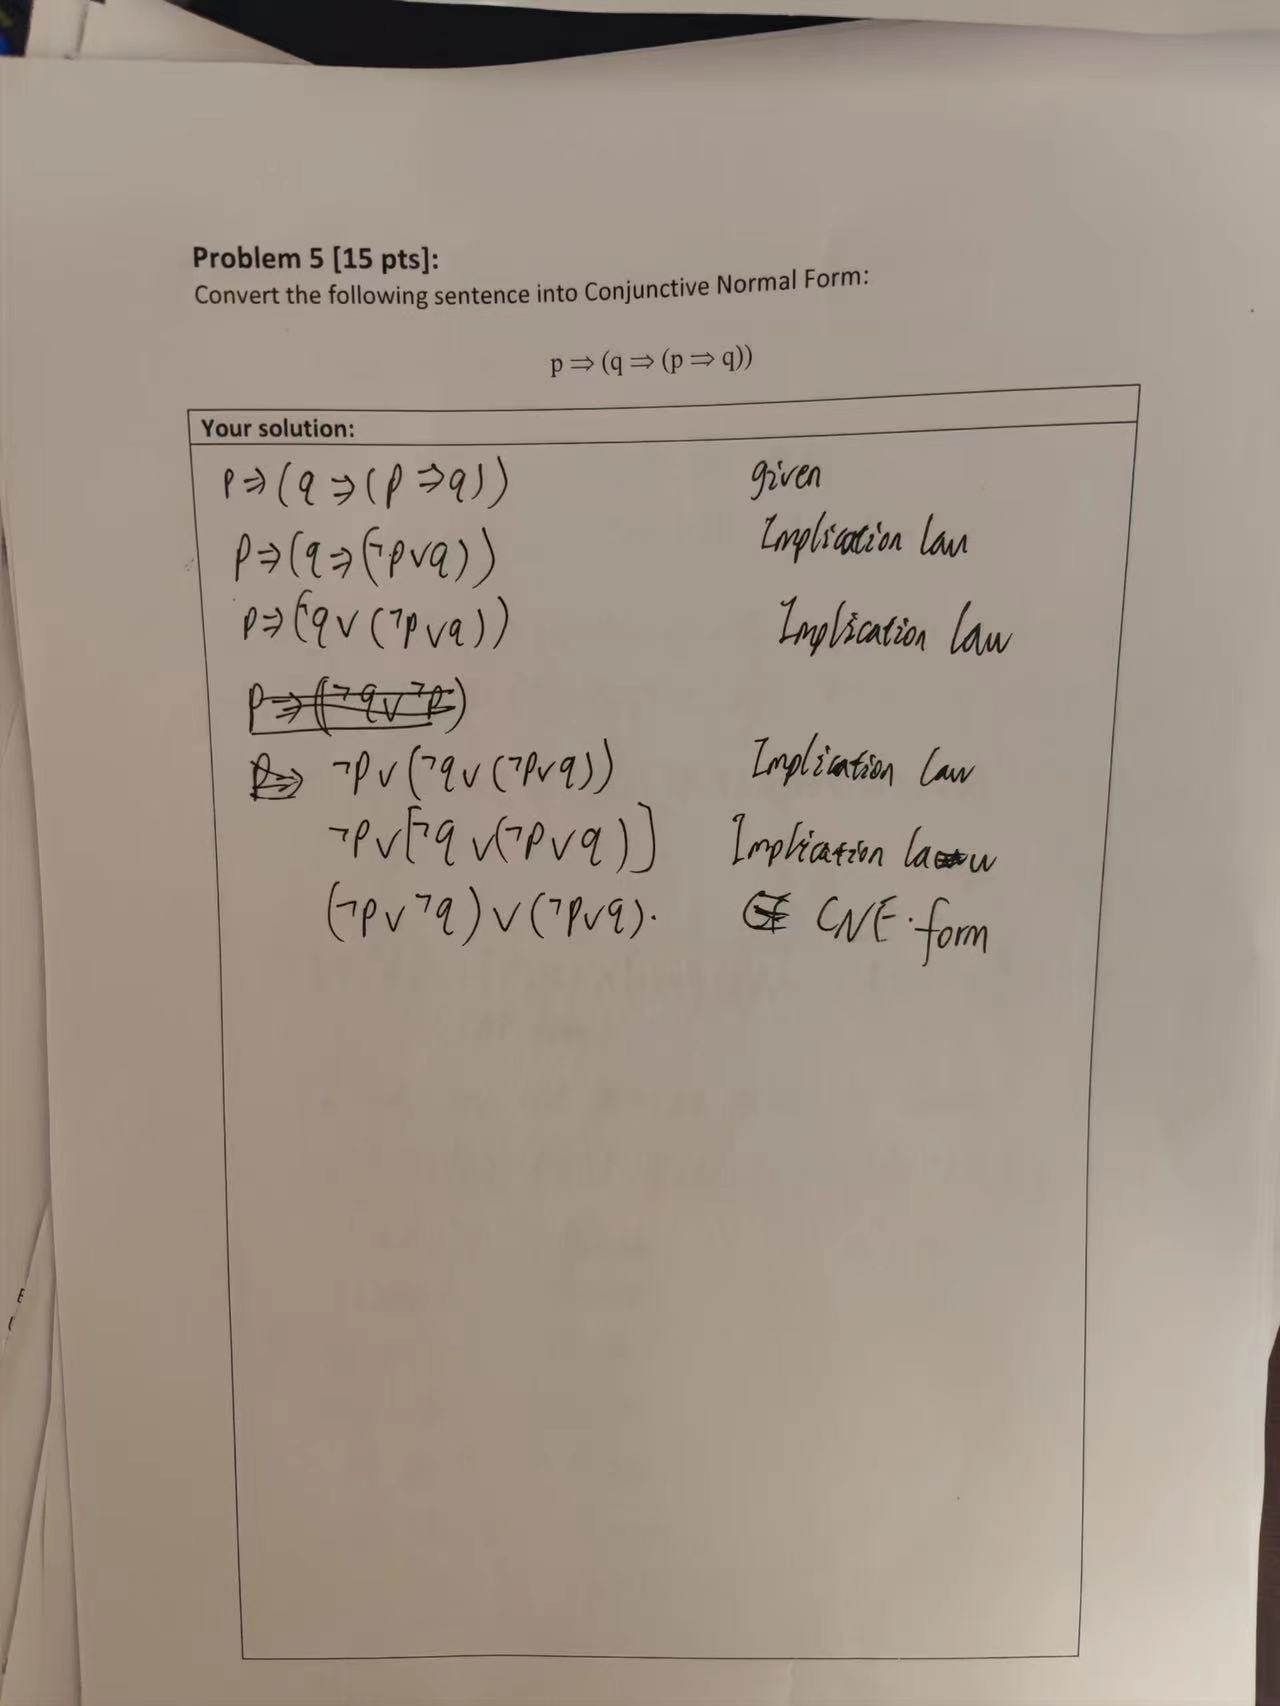 Problem 5 [15 pts]:
Convert the following sentence into Conjunctive Normal Form:
p ⇒ (q ⇒ (p ⇒ q))
Your solution:
p⇒(q⇒(p⇒q)) given
p⇒(q⇒(¬p∨q)) Implication law
p⇒(¬q∨(¬p∨q)) Implication law
p⇒(¬q∨¬p)
p⇒ ¬p∨(¬q∨(¬p∨q)) Implication law
¬p∨[¬q∨(¬p∨q)] Implication law
(¬p∨¬q)∨(¬p∨q). CNF.form